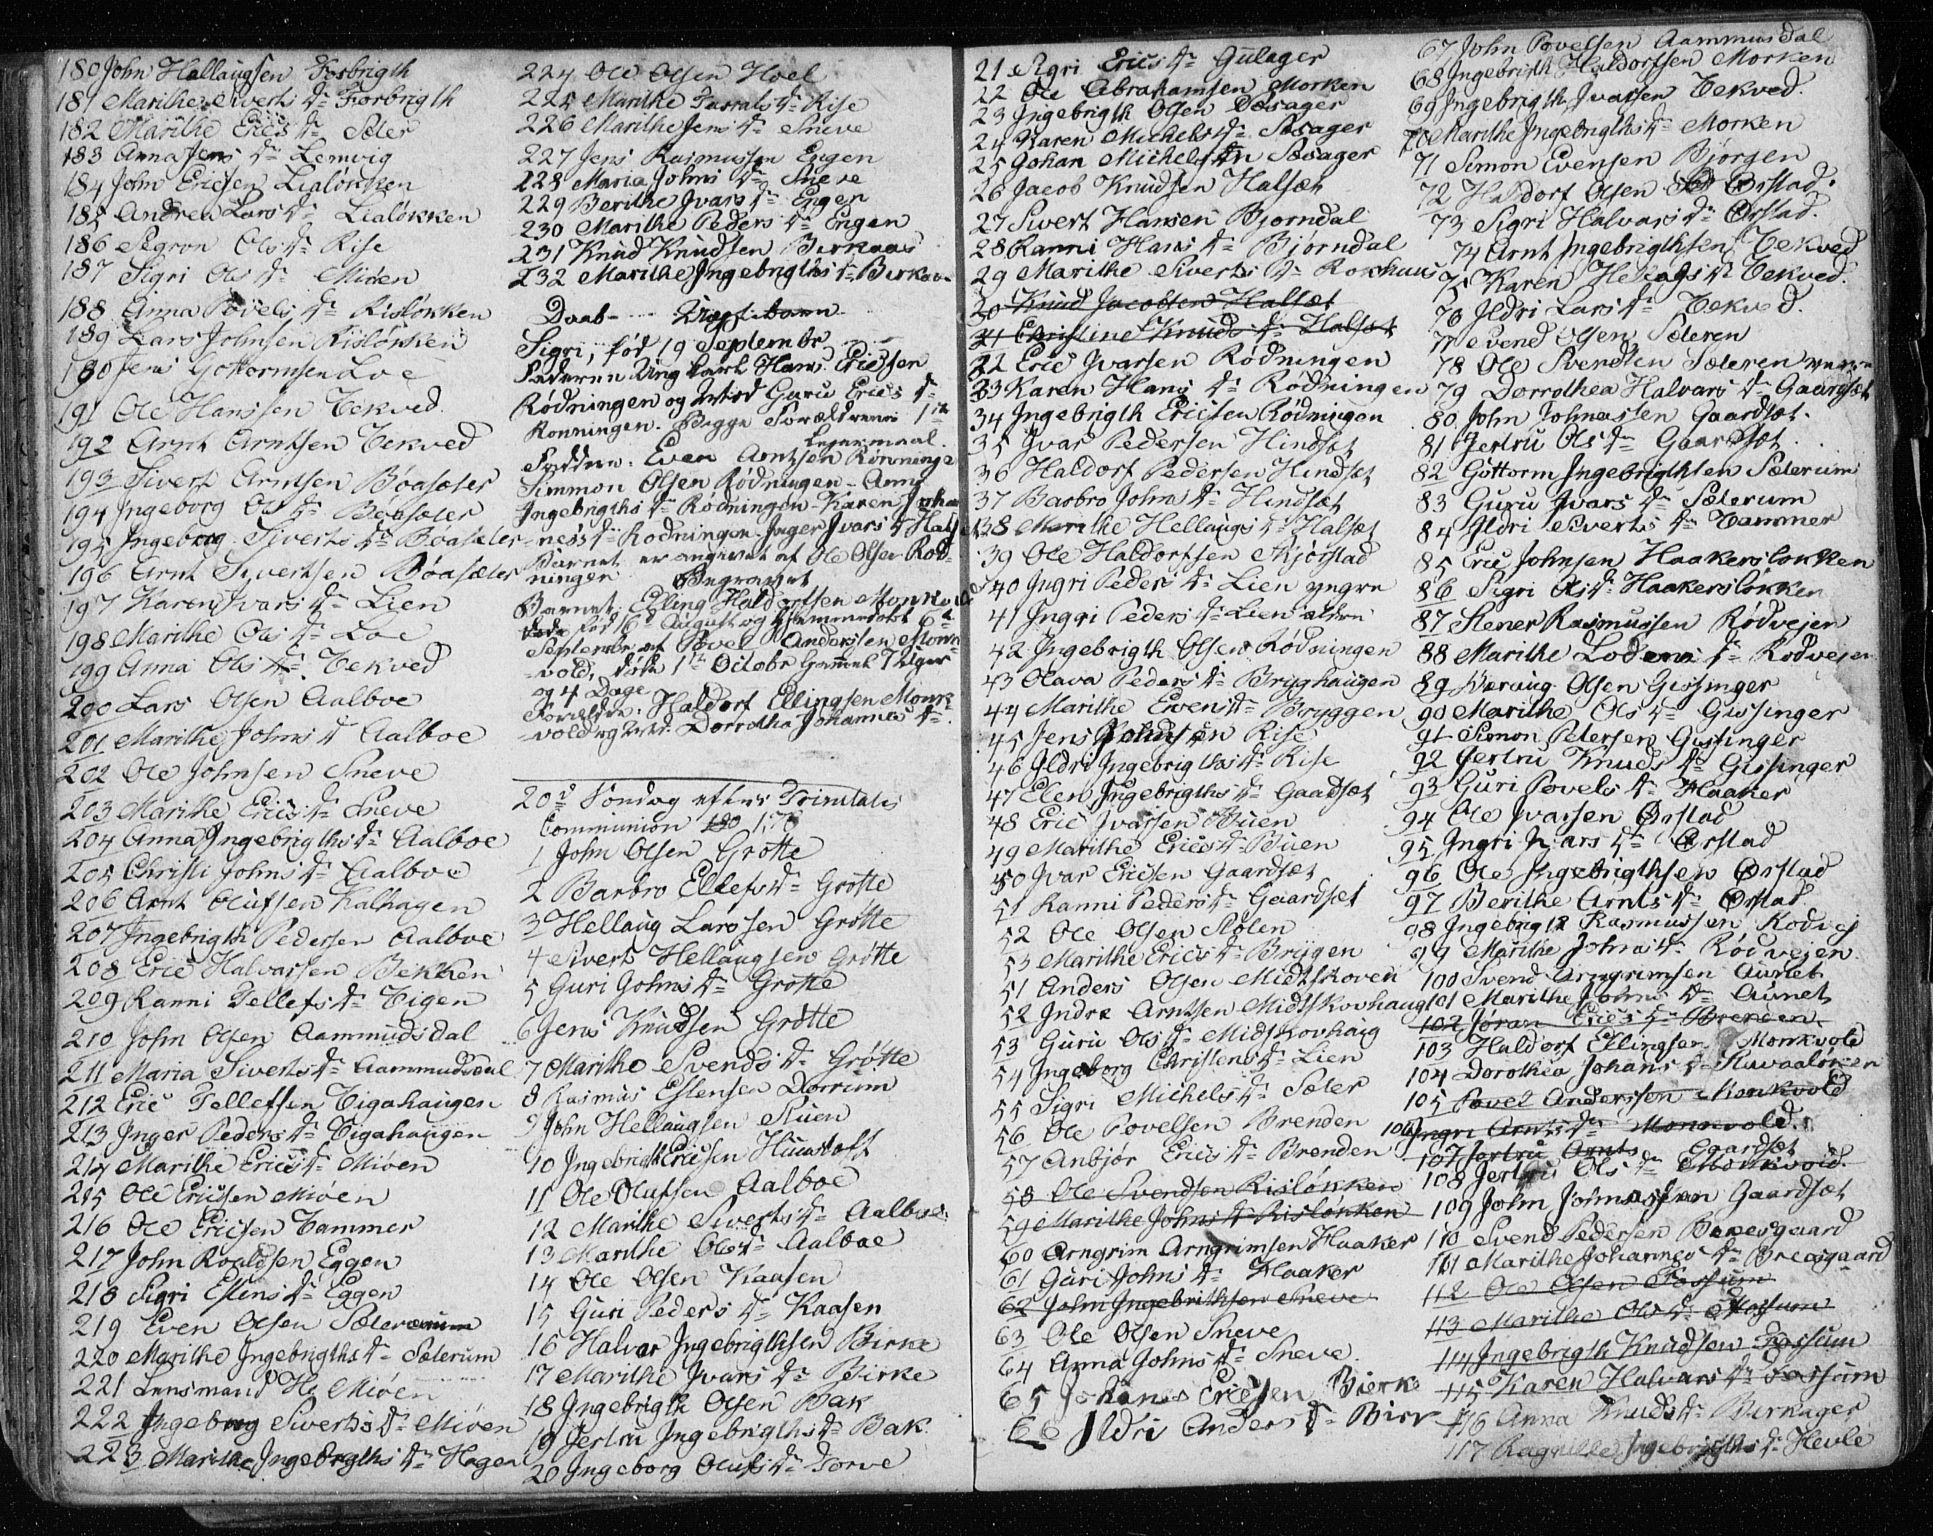 180 John Hallaugsen Fosbrigth
181 Marithe Siverts Dr Fiosbrigth
182 Marithe Erics Dr Sæter
183 Anna Jens Dr Lemvig
184 John Ericsen Lialøkken
185 Andrea Lars Dr Lialøkken
186 Ols Dr Rise
187 Sigri Ols Dr Miøen
188 Anna Povels Dr Risløkken
189 Lars Johnsen Risløkken
190 Jens Gottormsen Loe
191 Ole Hansen Tekved
192 Arnt Arntsen Tekved
193 Sivert Arntsen Bøasæter
194 Ingeborg Ols Dr Bøasæter
195 Ingeborg Siverts Dr Bøasæter
196 Arnt Sivertsen Bøasæter
197 Karen Ivars Dr Lien
198 Marithe Ols Dr Loe
199 Anna Ols Dr Tekved
200 Lars Olsen Aalboe
201 Marithe Johns Dr Aalboe
202 Ole Johnsen Sneve
203 Marithe Erics Dr Sneve
204 Anna Ingebrigths Dr Aalboe
205 Christi Johns Dr Aalboe
206 Arnt Olufsen Kalhagen
207 Ingebrigth Pedersen Aalboe
208 Eric Halvarsen Bekken
209 Ranni Tellefs Dr Tigen
210 John Olsen Aammudsdal
211 Maria Siverts Dr Aammudsdal
212 Eric Tellefsen Tigahaugen
213 Inger Peders Dr Tigahaugen
214 Marithe Erics Dr Miøen
215 Ole Ericsen Miøen
216 Ole Ericsen Tammer
217 John Roaldsen Eggen
218 Sigri Estens Dr Eggen
219 Even Olsen Sæterum
220 Marithe Ingebrigths Dr Sæterum
221 Lensmand Hr Miøen
222 Ingeborg Siverts Dr Miøen
223 Marithe Ingebrigths Dr Hagen
224 Ole Olsen Hoel
225 Marithe Dr Rise
226 Marithe Jens Dr Sneve
227 Jens Rasmussen Engen
228 Maria Johns Dr Sneve
229 Berithe Ivars Dr Engen
230 Marithe Peders Dr Engen
231 Knud Knudsen Birkaas
232 Marithe Ingebrigths Dr Birkaas
Daab Uægt. barn
Sigri, fød 19 September
Faderen Ung karl Hans Ericsen
Rødningen og Guru Erics Dr
Rønningen. Begge Forældrenes 1ste
Leiermaal.
Fadder: Even Arntsen Rønninge
Simmon Olsen Rødningen - Anne
Ingebrigths Dr Rødningen - Karen Johan
nes Dr Rødningen. Inger Ivars Dr Halset
Barnet er angivet af Ole Olsen Rød-
ningen Begravet
Barnet Elling Haldorsen Monkvold
fød 16 August og hjemmedøbt 6te
September af Povel Anderssen Monk
vold, døde 1ste Octobr gammel 7 Uger
og 4 Dage
Forældre: Haldorf Ellingsen Monk
vold og Dorrothea Johannes Dr.
20de Søndag efter Trinitatis
Communion 180 158
1 John Olsen Grøtte
2 Barbro Ellefs Dr Grøtte
3 Hellaug Larssen Grøtte
4 Sivert Hellaugsen Grøtte
5 Guri Johns Dr Grøtte
6 Jens Knudsen Grøtte
7 Marithe Svends Dr Grøtte
8 Rasmus Estensen Dorrum
9 John Hellaugsen Stuen
10 Ingebrigth Ericsen
11 Ole Olufsen Aalboe
12 Marithe Siverts Dr Aalboe
13 Marithe Ols Dr Aalboe
14 Ole Olsen Kaasen
15 Guri Peders Dr Kaasen
16 Halvor Ingebrigthsen Birke
17 Marithe Ivars Dr Birke
18 Ingebrigth Olsen Bak
19 Jertru Ingebrigths Dr Bak
20 Ingeborg Olufs Dr Torve
21 Sigri Erics Dr Gulager
22 Ole Abrahamsen Morken
23 Ingebrigth Olsen Dæsager
24 Karen Michels Dr Sæsager
25 Johan Michelsen Sæsager
26 Jacob Knudsen Halsæt
27 Sivert Hansen Bjørndal
28 Ranni Hans Dr Bjørndal
29 Marithe Siverts Dr Rokhuus
30 Knud Jacobsen Halsæt
31 Christine Knuds Dr Halsæt
32 Eric Ivarsen Rødningen
33 Karen Hans Dr Rødningen
34 Ingebrigth Ericsen Rødningen
35 Ivar Pedersen Hindsæt
36 Haldorf Pedersen Hindsæt
37 Barbro Johns Dr Hindsæt
38 Marithe Hellaugs Dr Halsæt
39 Ole Haldorfsen Skjørstad
40 Ingri Peders Dr Lien yngre
41 Ingri Peders Dr Lien ældre
42 Ingebrigth Olsen Rødningen
43 Olava Peders Dr Bryghaugen
44 Marithe Evens Dr Bryggen
45 Jens Johnsen Rise
46 Ildri Ingebrigths Dr Rise
47 Elen Ingebrigths Dr Gaardsæt
48 Eric Ivarsen Buen
49 Marithe Erics Dr Buen
50 Ivar Ericsen Gaardsæt
51 Ranni Peders Dr Gaardsæt
52 Ole Olsen Stølen
53 Marithe Erics Dr Bryggen
51 Anders Olsen Midtskoven
52 Indre Arntsen Midtskovhaug
53 Guru Ols Dr Midtskovhaug
54 Ingeborg Christens Dr Lien
55 Sigri Michels Dr Sæter
56 Ole Povelsen Brenden
57 Anbjør Erics Dr Brenden
58 Ole Svendsen Risløkken
59 Marithe Johns Dr Risløkken
60 Arngrim Arngrimsen Haaker
61 Guri Johns Dr Haaker
62 John Ingebrithsen Sneve
63 Ole Olsen Sneve
64 Anna Johns Dr Sneve
65 Johanes Ericsen Bierke
66 Ildri Anders Dr Bier
67 John Povelsen Aammusdal
68 Ingebrigth Haldorfsen Morken
69 Ingebrigth Ivarsen Tekved.
70 Marithe Ingebrigths Dr Morken
71 Simon Evensen Bjørgen
72 Haldorf Olsen Ørstad.
73 Sigri Halvars Dr Ørstad.
74 Arnt Ingebrigthsen Tekved
75 Karen Dr Tekved.
70 Ildri Lars Dr Tekved.
77 Svend Olsen Sæteren
78 Ole Svendsen Sæteren yngre
79 Dorrothea Halvars Dr Gaardsæt
80 John Johnassen Gaardsæt.
81 Jertru Ols Dr Gaardsæt.
82 Gottorm Ingebrigthsen Sæterum
83 Guru Ivars Dr Sæterum
84 Ildri Siverts Dr Tammer
85 Eric Johnsen Haakersløkken
86 Sigri Ols Dr Haakersløkken
87 Stener Rasmussen Rødvejen
88 Marithe Lodens Dr Rødvejen
89 Olsen Gissinger
90 Marithe Ols Dr Gissinger
91 Simon Petersen Gissinger
92 Jertru Knuds Dr Gissinger
93 Guri Povels Dr Haaker
94 Ole Ivarsen Ørstad
95 Ingri Ivars Dr Ørstad
96 Ole Ingebrigthsen Ørstad
97 Berithe Arnts Dr Ørstad.
98 Ingebrigth Rasmussen Rødvej
99 Marithe Johns Dr Rødvejen
100 Svend Arngrimsen Aunet
101 Marithe Johns Dr Aunet
102 Jøran Erics Dr Brenden
103 Haldorf Ellingsen Monkvold
104 Dorothea Johans Dr
105 Povel Anderssen Monkvold
106 Ingri Arnts Dr Monkvold.
107 Jertru Arnts Gaardsæt
108 Jertru Ols Dr Monkvold.
109 John Johnassen Gaardsæt
110 Svend Pedersen Bræesgaard
111 Marithe Johannes Dr Bræesgaard
112 Ole Olsen Fossum
113 Marithe Ols Dr Fossum
114 Ingebrigth Knudsen Fossum
115 Karen Halvars Dr Fossum
116 Anna Knuds Dr Birkager
117 Ragnille Ingebrigths Dr Hevle